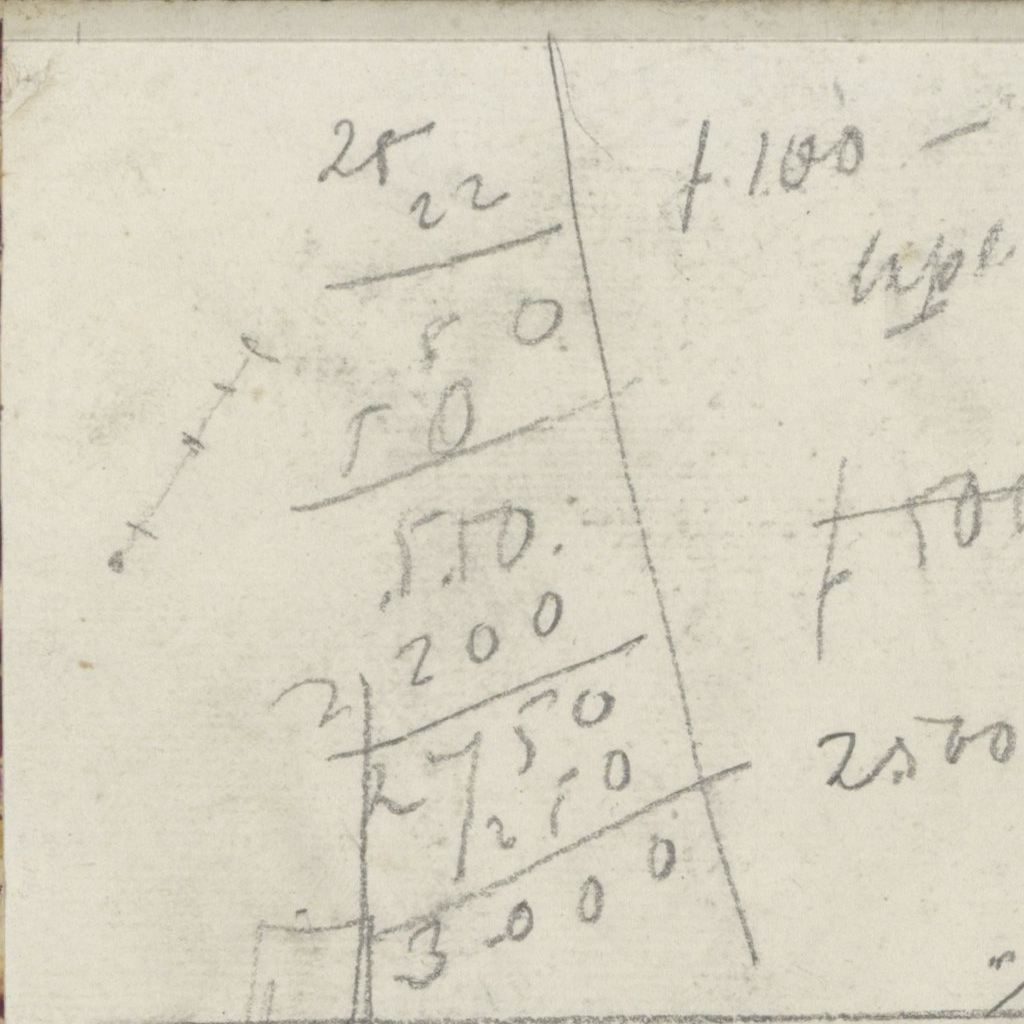 25
22
50
50
550
200
2
2750
250
3000
f 100 -
f 500
2500